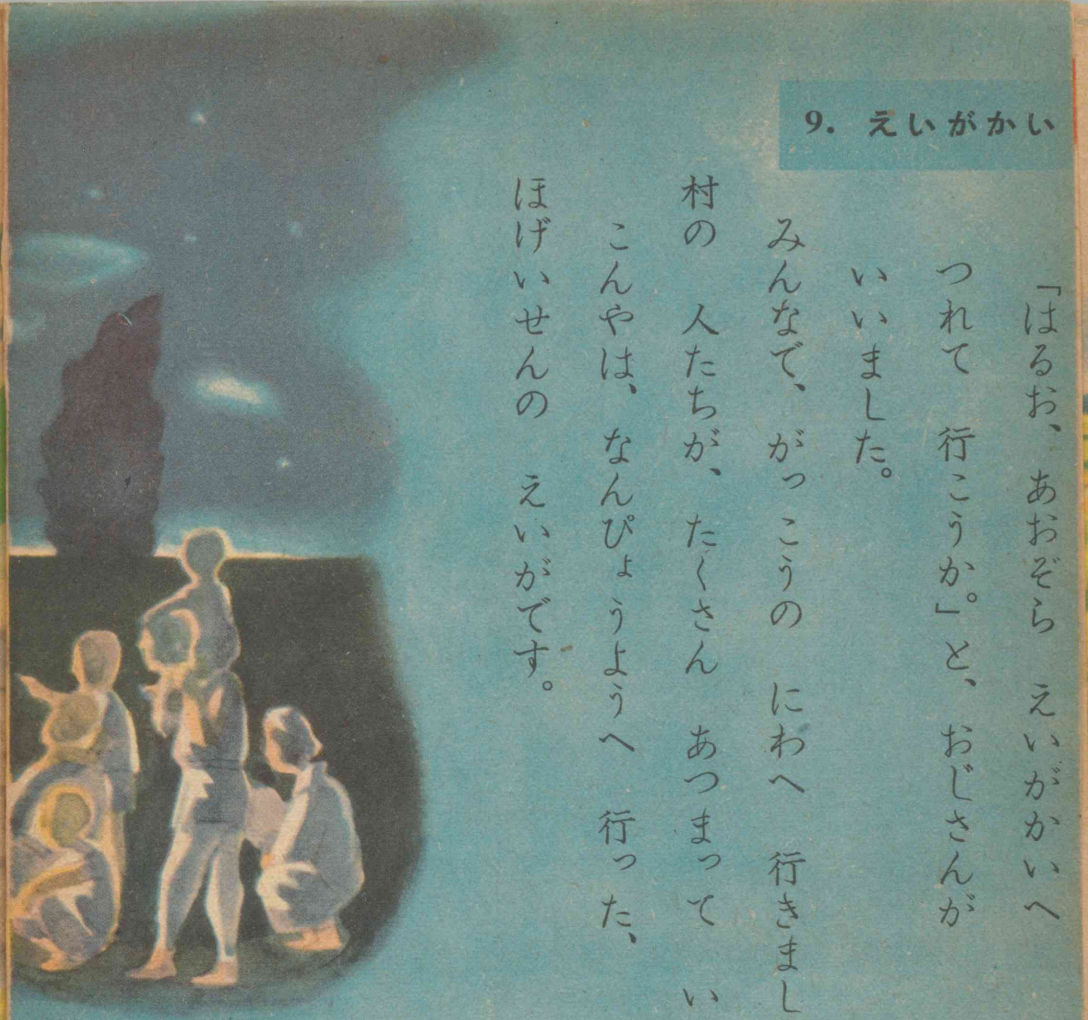 9. えいがかい
「はるお、あおぞら　えいがかいへ
つれて　行こうか。」と、おじさんが
いいました。
みんなで、がっこうの　にわへ　行きまし
村の　人たちが、たくさん　あつまって　い
こんやは、なんぴょうようへ　行った、
ほげいせんの　えいがです。